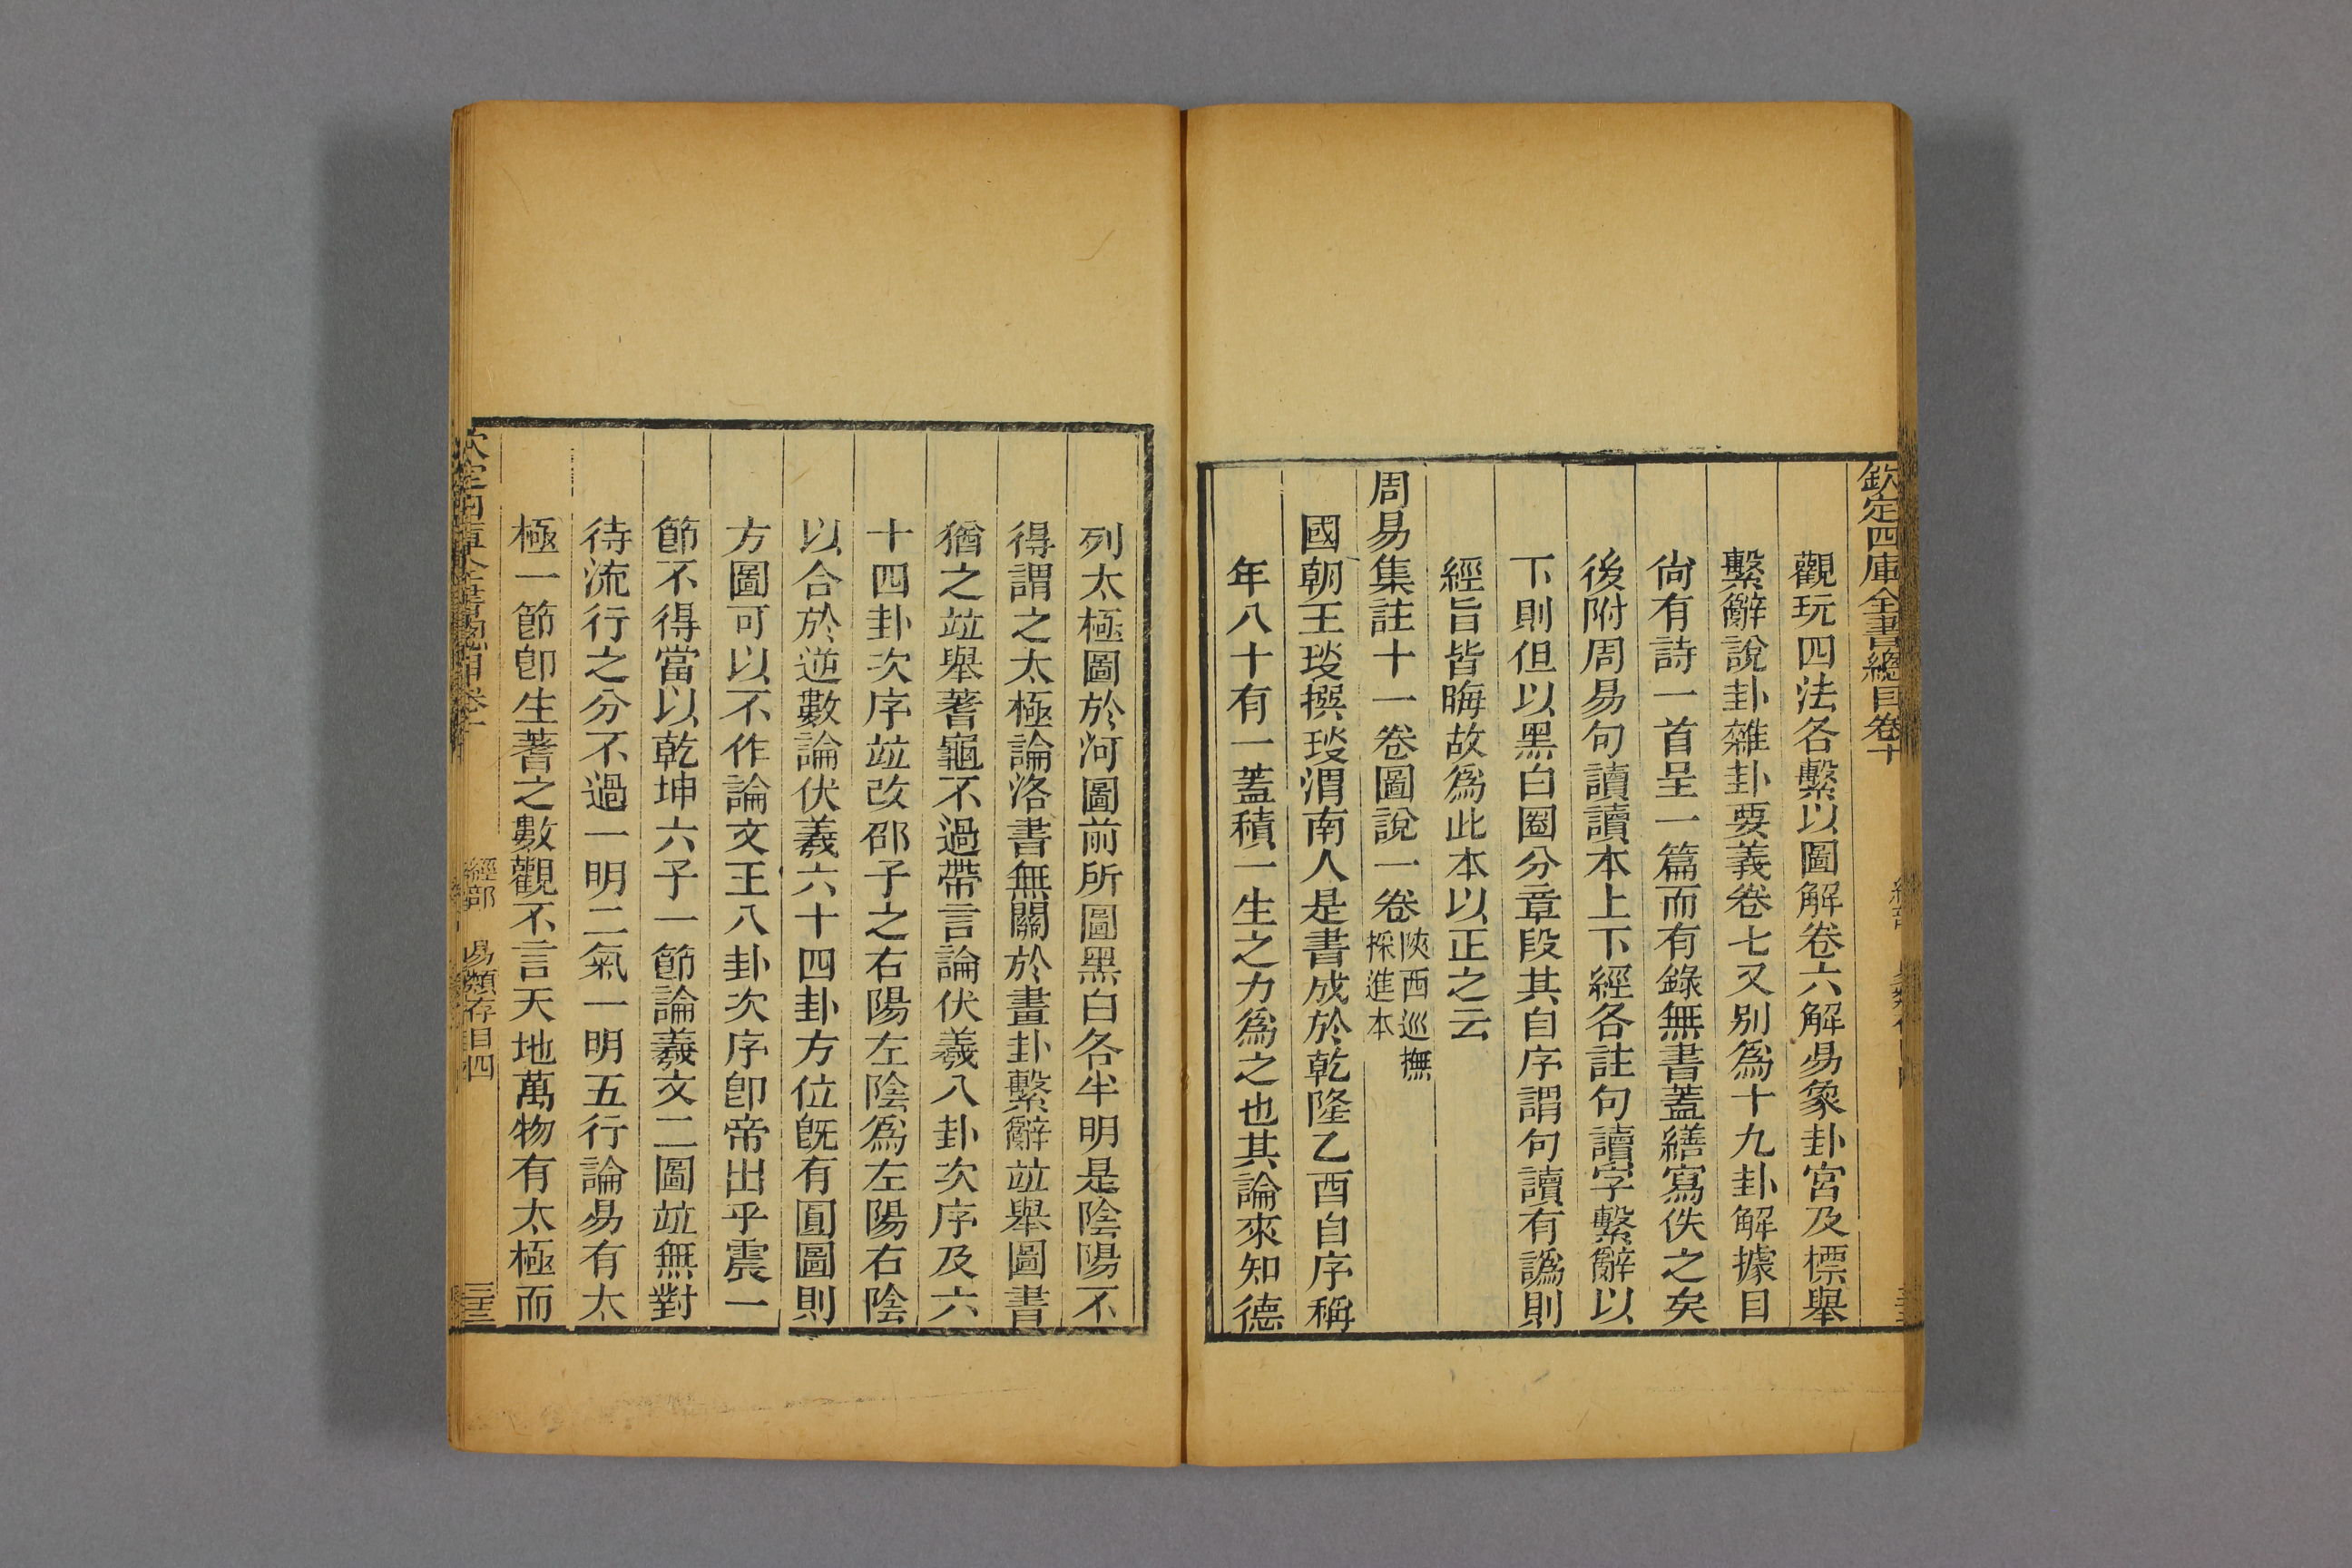 欽定四庫全書總目卷十
觀玩四法各繫以圖解卷六解易象卦宮及標舉
繫辭說卦雜卦要義卷七又別爲十九卦解據目
尙有詩一首呈一篇而有錄無書蓋繕寫佚之矣
後附周易句讀讀本上下經各註句讀字繫辭以
下則但以黑白圈分章段其自序謂句讀有譌則
經旨皆晦故爲此本以正之云
周易集註十一卷圖說一卷陜西巡撫採進本
國朝王琰撰琰渭南人是書成於乾隆乙酉自序稱
年八十有一蓋積一生之力爲之也其論來知德
列太極圖於河圖前所圖黑白各半明是陰陽不
得謂之太極論洛書無關於畫卦繫辭竝舉圖書
猶之竝舉蓍龜不過帶言論伏羲八卦次序及六
十四卦次序竝改邵子之右陽左陰爲左陽右陰
以合於逆數論伏羲六十四卦方位旣有圓圖則
方圖可以不作論文王八卦次序卽帝出乎震一
節不得當以乾坤六子一節論羲文二圖竝無對
待流行之分不過一明二氣一明五行論易有太
極一節卽生蓍之數觀不言天地萬物有太極而
經部 易類存目四